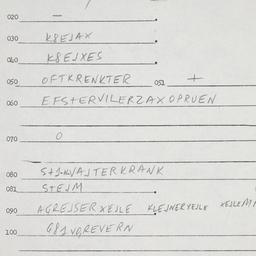 020 —
030 K8EJAX
040 K8EJXES
050 OFTKRENKTER 051 +
060 EFSTERVILERZAXOPRUEN
070 0
080 S+J-K/AJTERKRANK
081 S+EJM
090 AGREJSERXEJLE KLEJNERXEJLE
100 G81VQREVERN